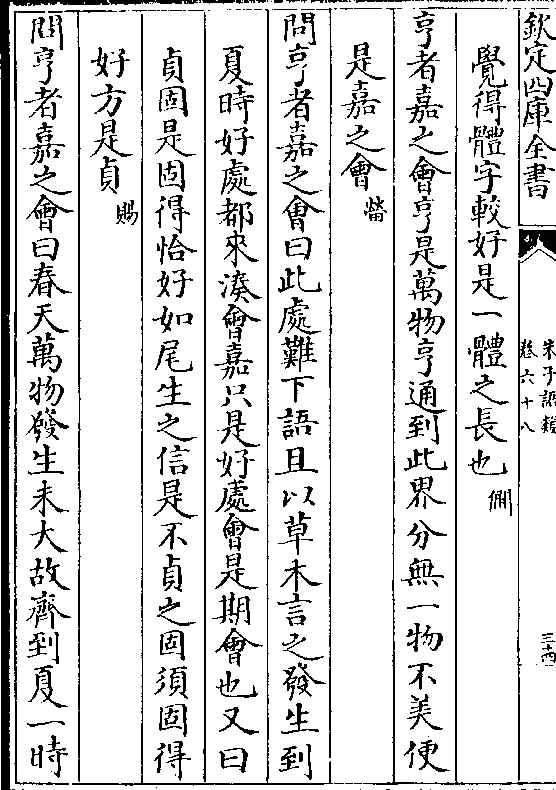 欽定四庫全書
朱子語類
卷六十八
三十四
覺得體字較好是一體之長也 僴
亨者嘉之會亨是萬物亨通到此界分無一物不美便
是嘉之會 㽦
問亨者嘉之會曰此處難下語且以草木言之發生到
夏時好處都來湊會嘉只是好處會是期會也又曰
貞固是固得恰好如尾生之信是不貞之固須固得
好方是貞 賜
問亨者嘉之會曰春天萬物發生未大故齊到夏一時